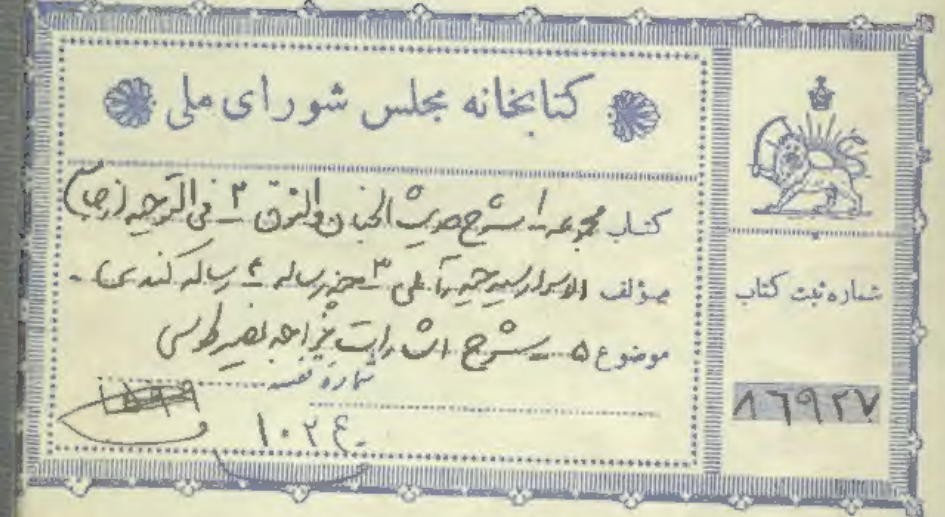 کتابخانه مجلس شورای ملی
کتاب مجموعه ۱ـ شرح حدیث ۲ـ فی التوحید (جامع
مؤلف الاسرار سید حیدر آملی ۳ـ چند رساله ۴ـ رساله
موضوع ۵ـ شرح اشارات خواجه نصیر طوسی
شماره قفسه
۱۵۹۹
۱۰۲۴
شماره ثبت کتاب
۸۶۹۲۷